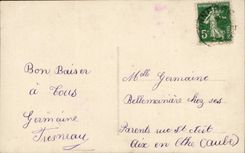 Bon Baiser
à Tous
Germaine
Fresneau
5c
Melle Germaine
Bellemanière chez ses
Parents rue st
Aix en Othe (Aube)